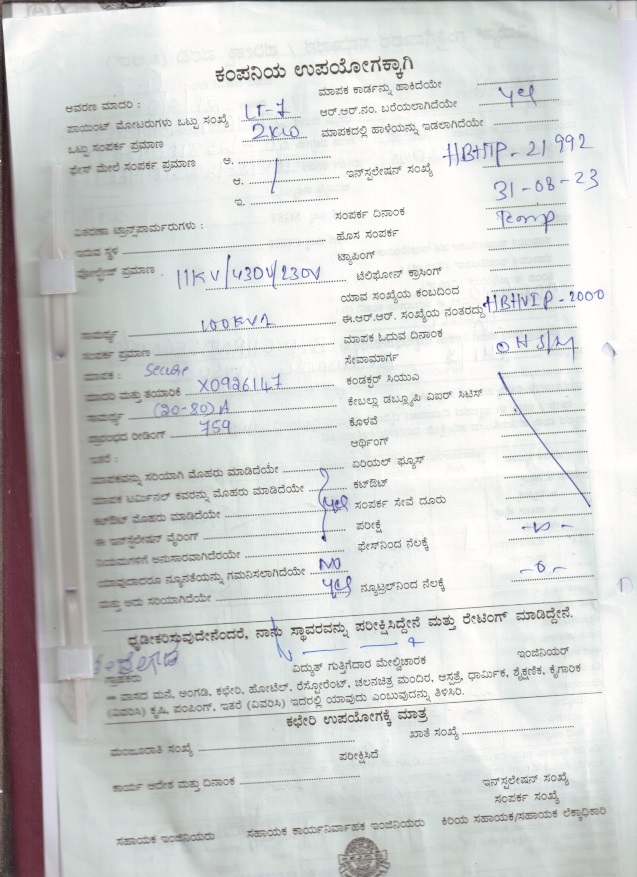 ಕಂಪನಿಯ ಉಪಯೋಗಕ್ಕಾಗಿ
ಆವರಣ ಮಾದರಿ : LT-7
ಮಾಪಕ ಕಾರ್ಡನ್ನು ಹಾಕಿದೆಯೇ
ಪಾಯಿಂಟ್ ಮೋಟರುಗಳು ಒಟ್ಟು ಸಂಖ್ಯೆ 2KW
ಆರ್.ಆರ್.ನಂ. ಬರೆಯಲಾಗಿದೆಯೇ yes
ಒಟ್ಟು ಸಂಪರ್ಕ ಪ್ರಮಾಣ
ಮಾಪಕದಲ್ಲಿ ಹಾಳೆಯನ್ನು ಇಡಲಾಗಿದೆಯೇ
ಫೇಸ್ ಮೇಲೆ ಸಂಪರ್ಕ ಪ್ರಮಾಣ ಅ.
ಆ.
ಇ.
ಇನ್‌ಸ್ಟಲೇಷನ್ ಸಂಖ್ಯೆ HBHTP-21992
ಸಂಪರ್ಕ ದಿನಾಂಕ 31-08-23
ವಿತರಣಾ ಟ್ರಾನ್ಸ್‌ಫಾರ್ಮರುಗಳು :
ಹೊಸ ಸಂಪರ್ಕ Temp
ಇರುವ ಸ್ಥಳ
ಟ್ಯಾಪಿಂಗ್
ವೋಲ್ಟೇಜ್ ಪ್ರಮಾಣ 11KV/430V/230V
ಟೆಲಿಫೋನ್ ಕ್ರಾಸಿಂಗ್
ಯಾವ ಸಂಖ್ಯೆಯ ಕಂಬದಿಂದ
ಸಾಮರ್ಥ್ಯ 100KVA
ಈ.ಆರ್.ಆರ್. ಸಂಖ್ಯೆಯ ನಂತರದ್ದು HBHVIP-2000
ಸಂಪರ್ಕ ಪ್ರಮಾಣ
ಮಾಪಕ ಓದುವ ದಿನಾಂಕ
ಮಾಪಕ : Secure
ಸೇವಾಮಾರ್ಗ OH S/M
ಮಾದರಿ ಮತ್ತು ತಯಾರಿಕೆ X0926147
ಕಂಡಕ್ಟರ್ ಸಿಯುಎ
ಸಾಮರ್ಥ್ಯ (20-80)A
ಕೇಬಲ್ಲು ಡಬ್ಲ್ಯೂಪಿ ವಿಐಆರ್ ಸಿಟಿಸ್
ಪ್ರಾರಂಭದ ರೀಡಿಂಗ್ 759
ಕೊಳವೆ
ಇತರೆ :
ಅರ್ಥಿಂಗ್
ಮಾಪಕವನ್ನು ಸರಿಯಾಗಿ ಮೊಹರು ಮಾಡಿದೆಯೇ
ಏರಿಯಲ್ ಫ್ಯೂಸ್
ಮಾಪಕ ಟರ್ಮಿನಲ್ ಕವರನ್ನು ಮೊಹರು ಮಾಡಿದೆಯೇ
ಕಟ್‌ಔಟ್
ಕಟ್‌ಔಟ್ ಮೊಹರು ಮಾಡಿದೆಯೇ yes
ಸಂಪರ್ಕ ಸೇವೆ ದೂರು
ಈ ಇನ್‌ಸ್ಟಲೇಷನ್ ವೈರಿಂಗ್
ಪರೀಕ್ಷೆ
ನಿಯಮಗಳಿಗೆ ಅನುಸಾರವಾಗಿದೆರೆಯೇ
ಫೇಸ್‌ನಿಂದ ನೆಲಕ್ಕೆ
ಯಾವುದಾದರೂ ನ್ಯೂನತೆಯನ್ನು ಗಮನಿಸಲಾಗಿದೆಯೇ NO
ಮತ್ತು ಅದು ಸರಿಯಾಗಿದೆಯೇ yes
ನ್ಯೂಟ್ರಲ್‌ನಿಂದ ನೆಲಕ್ಕೆ -0-
ಧೃಡೀಕರಿಸುವುದೇನೆಂದರೆ, ನಾನು ಸ್ಥಾವರವನ್ನು ಪರೀಕ್ಷಿಸಿದ್ದೇನೆ ಮತ್ತು ರೇಟಿಂಗ್ ಮಾಡಿದ್ದೇನೆ.
ಗ್ರಾಹಕರು
ವಿದ್ಯುತ್ ಗುತ್ತಿಗೆದಾರ ಮೇಲ್ವಿಚಾರಕ
ಇಂಜಿನಿಯರ್
ವಾಸದ ಮನೆ, ಅಂಗಡಿ, ಕಛೇರಿ, ಹೋಟೆಲ್, ರೆಸ್ಟೋರೆಂಟ್, ಚಲನಚಿತ್ರ ಮಂದಿರ, ಆಸ್ಪತ್ರೆ, ಧಾರ್ಮಿಕ, ಶೈಕ್ಷಣಿಕ, ಕೈಗಾರಿಕ
(ವಿವರಿಸಿ) ಕೃಷಿ, ಪಂಪಿಂಗ್, ಇತರೆ (ವಿವರಿಸಿ) ಇದರಲ್ಲಿ ಯಾವುದು ಎಂಬುವುದನ್ನು ತಿಳಿಸಿರಿ.
ಕಛೇರಿ ಉಪಯೋಗಕ್ಕೆ ಮಾತ್ರ
ಮಂಜೂರಾತಿ ಸಂಖ್ಯೆ
ಖಾತೆ ಸಂಖ್ಯೆ
ಪರೀಕ್ಷಿಸಿದೆ
ಕಾರ್ಯ ಆದೇಶ ಮತ್ತು ದಿನಾಂಕ
ಇನ್‌ಸ್ಟಲೇಷನ್ ಸಂಖ್ಯೆ
ಸಂಪರ್ಕ ಸಂಖ್ಯೆ
ಸಹಾಯಕ ಇಂಜಿನಿಯರು
ಸಹಾಯಕ ಕಾರ್ಯನಿರ್ವಾಹಕ ಇಂಜಿನಿಯರು
ಕಿರಿಯ ಸಹಾಯಕ/ಸಹಾಯಕ ಲೆಕ್ಕಾಧಿಕಾರಿ